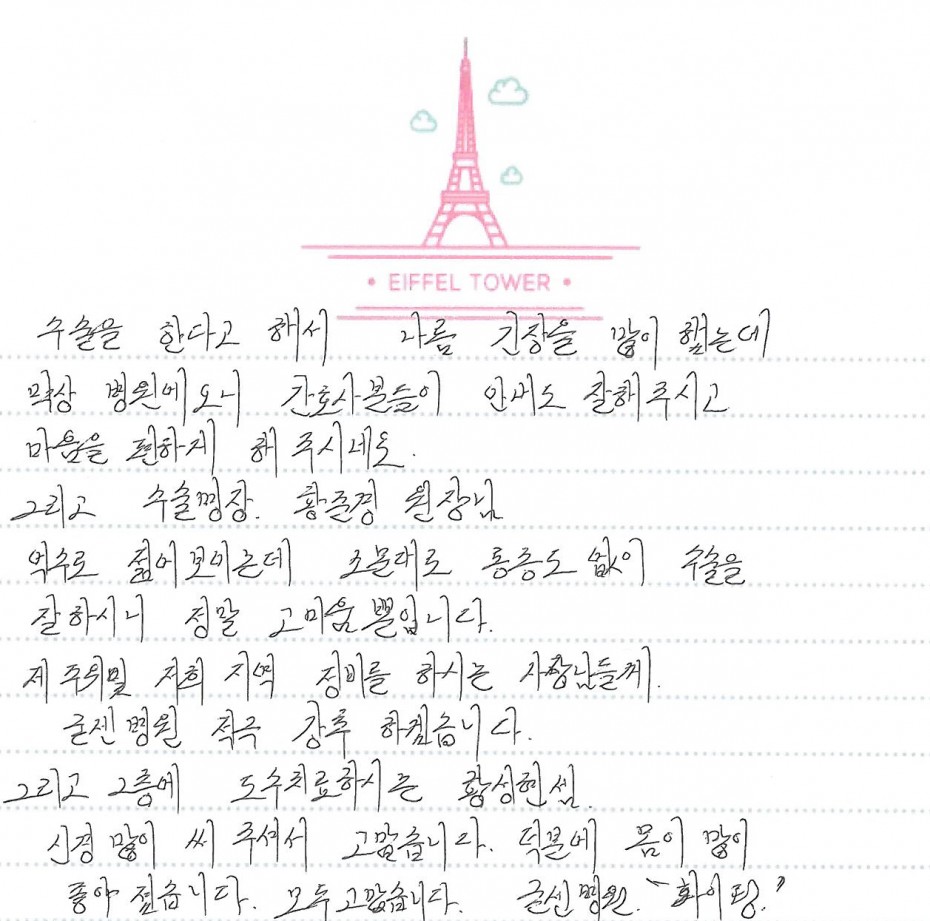 EIFFEL TOWER
수술을 한다고 해서 나름 긴장을 많이 했는데
막상 병원에오니 간호사분들이 안내도 잘해주시고
마음을 편하게 해 주시네요.
그리고 수술명장. 황준경 원장님
억수로 젊어보이는데 소문대로 통증도 없이 수술을
잘하시니 정말 고마움뿐입니다.
제 주위및 저희 지역 정비를 하시는 사장님들께.
굳센병원 적극 강추 하겠습니다.
그리고 2층에 도수치료하시는 황성현샘.
신경 많이 써 주셔서 고맙습니다. 덕분에 몸이 많이
좋아 졌습니다. 모두고맙습니다. 굳센병원. "화이팅."